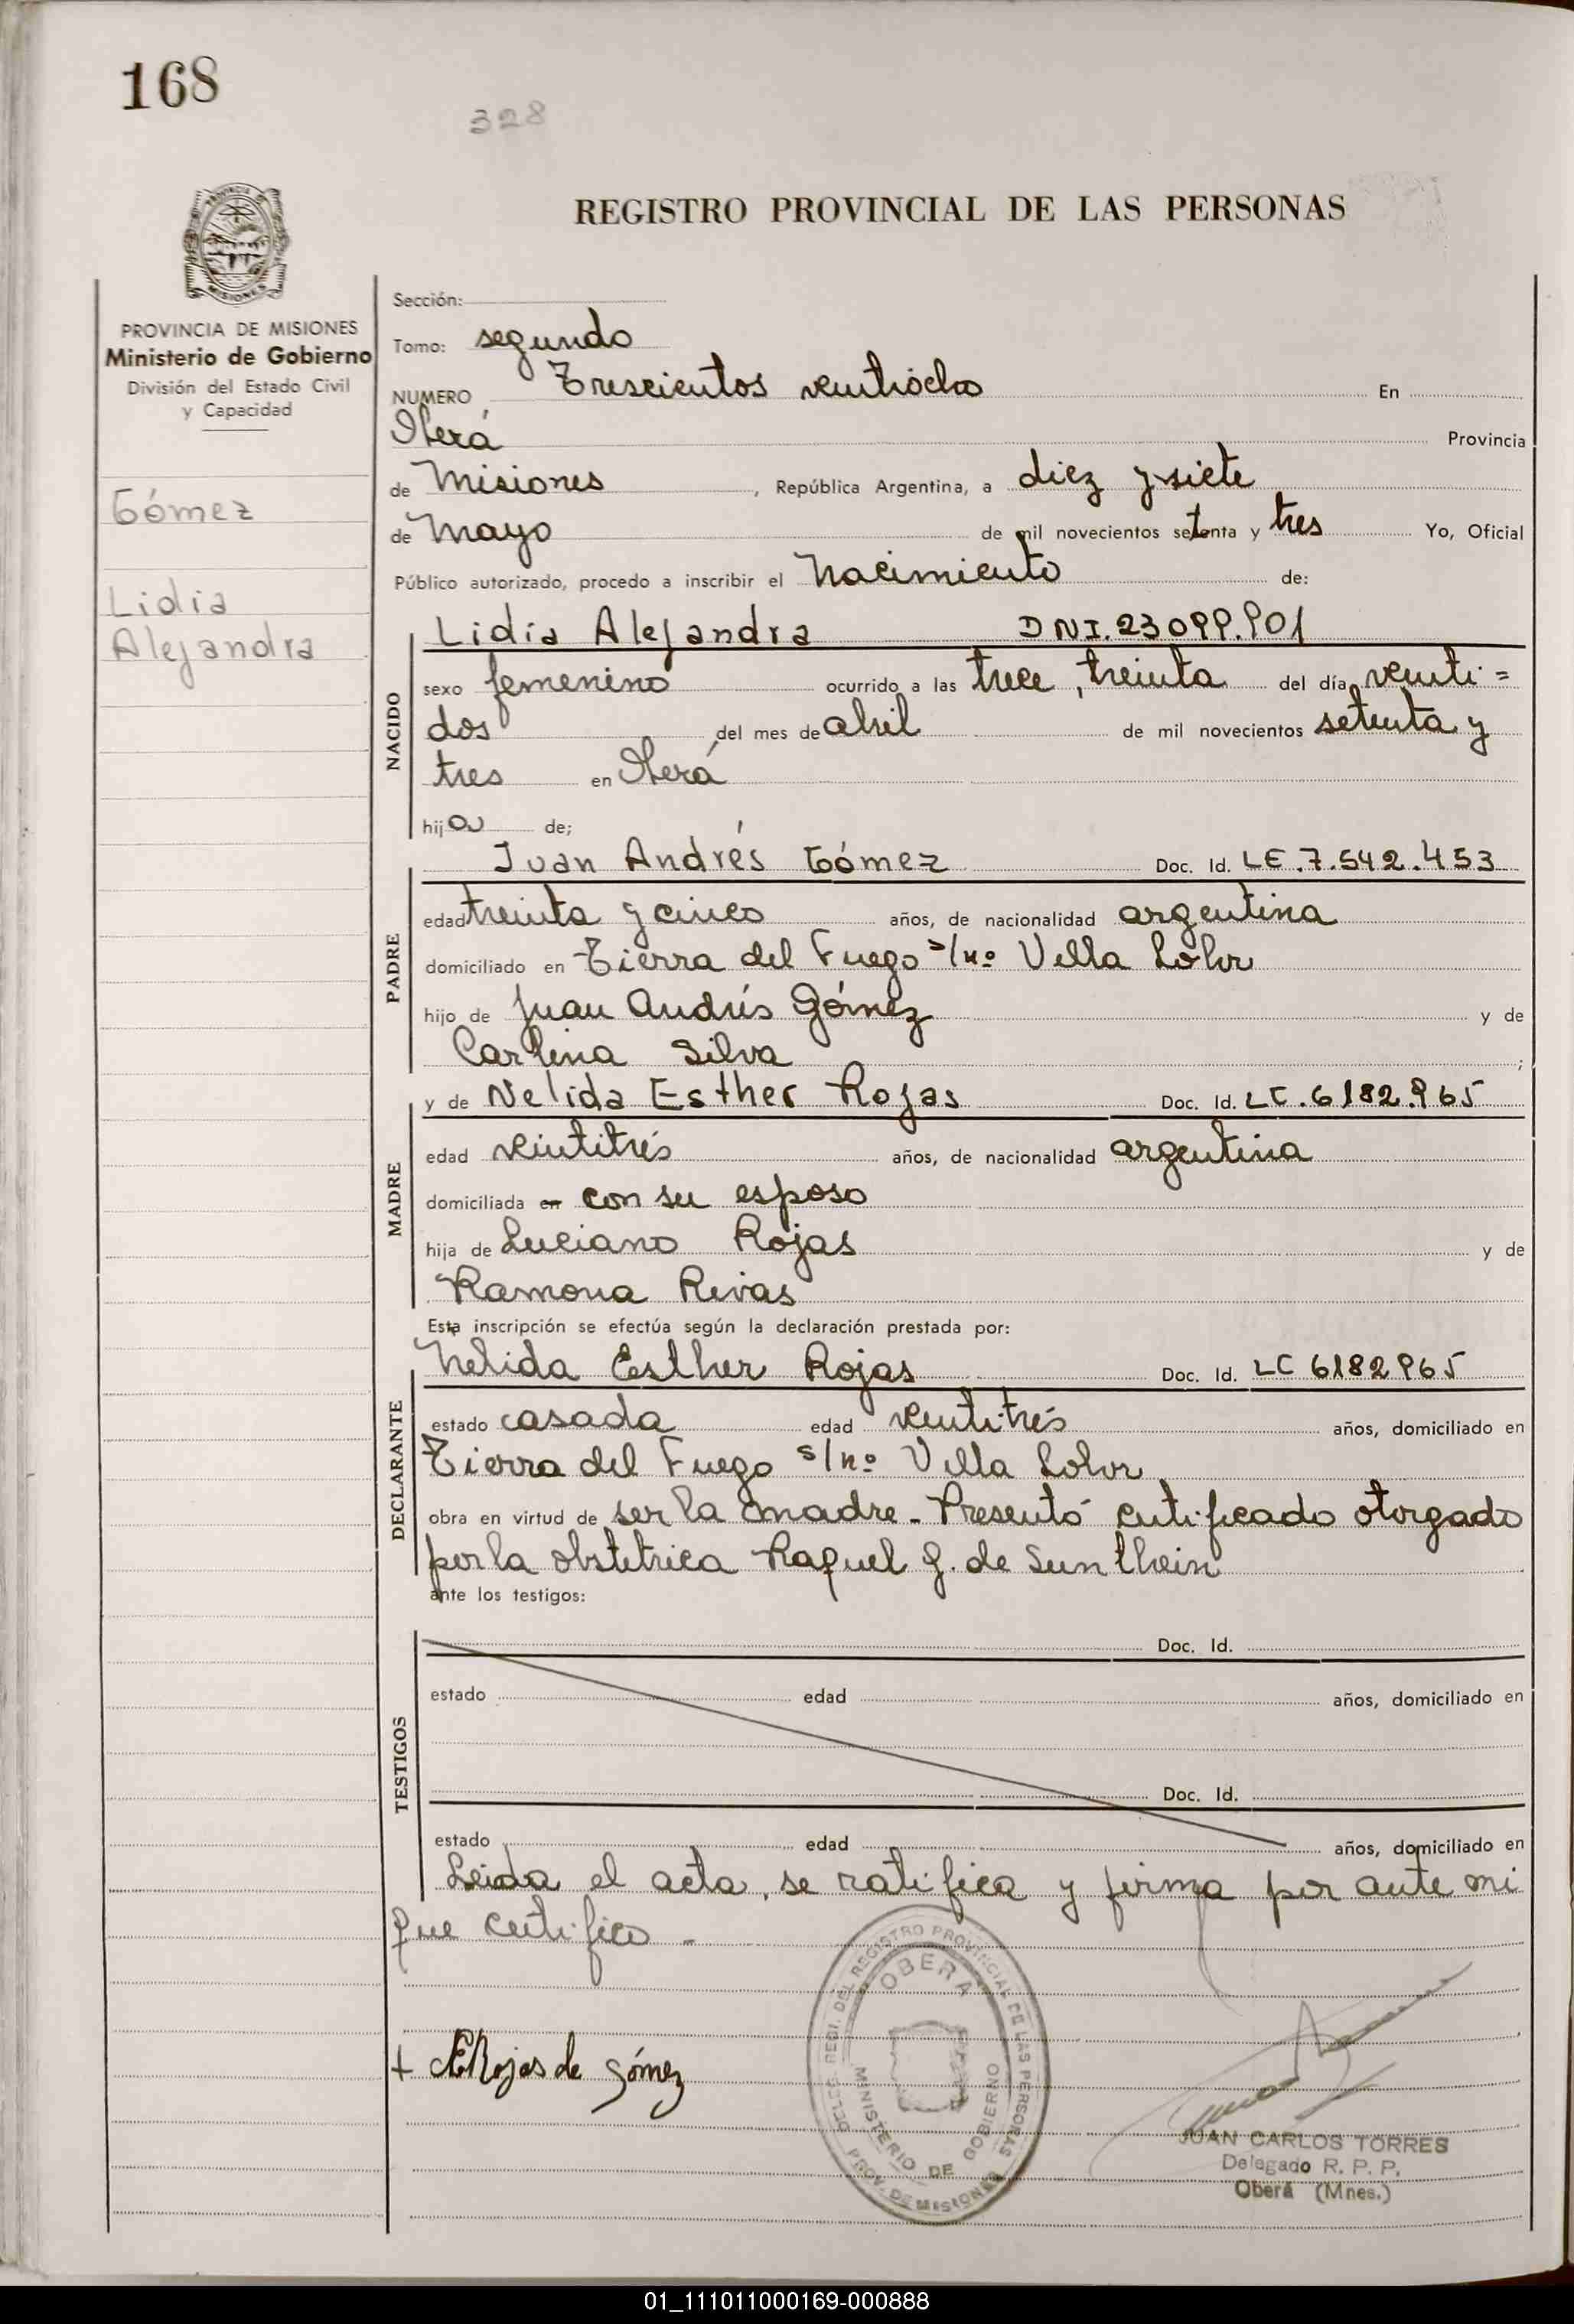 168
328
REGISTRO PROVINCIAL DE LAS PERSONAS
PROVINCIA DE MISIONES
Ministerio de Gobierno
División del Estado Civil
y Capacidad
Gómez
Lidia
Alejandra
Sección:
Tomo: segundo
NUMERO Trescientos veintiocho En
Oberá Provincia
de Misiones, República Argentina, a diez y siete
de Mayo de mil novecientos setenta y tres Yo, Oficial
Público autorizado, procedo a inscribir el Nacimiento de:
NACIDO
Lidia Alejandra DNI. 23099.901
sexo femenino ocurrido a las trece, treinta del día veinti=
dos del mes de abril de mil novecientos setenta y
tres en Oberá
hija de;
PADRE
Juan Andrés Gómez Doc. Id. LE. 7.542.453
edad treinta y cinco años, de nacionalidad argentina
domiciliado en Tierra del Fuego s/nº Villa
hijo de Juan Andrés Gómez y de
Carlina Silva;
MADRE
y de Nelida Esther Rojas Doc. Id. LC. 6182.965
edad veintitrés años, de nacionalidad argentina
domiciliada en con su esposo
hija de Luciano Rojas y de
Ramona Rivas
Esta inscripción se efectúa según la declaración prestada por:
DECLARANTE
Nelida Esther Rojas Doc. Id. LC 6182965
estado casada edad ventitrés años, domiciliado en
Tierra del Fuego s/nº Villa
obra en virtud de ser la madre - Presentó certificado otorgado
por la obstetrica Raquel G. de
ante los testigos:
TESTIGOS
Doc. Id.
estado edad años, domiciliado en
Doc. Id.
estado edad años, domiciliado en
Leida el acta, se ratifica y firma por ante mi
que certifico -
DELEG. REDI. DEL REGISTRO PROVINCIAL DE LAS PERSONAS
OBERA
MINISTERIO DE GOBIERNO
PROV. DE MISIONES
+ NERojas de Gómez
JUAN CARLOS TORRES
Delegado R. P. P.
Oberá (Mnes.)
01_111011000169-000888